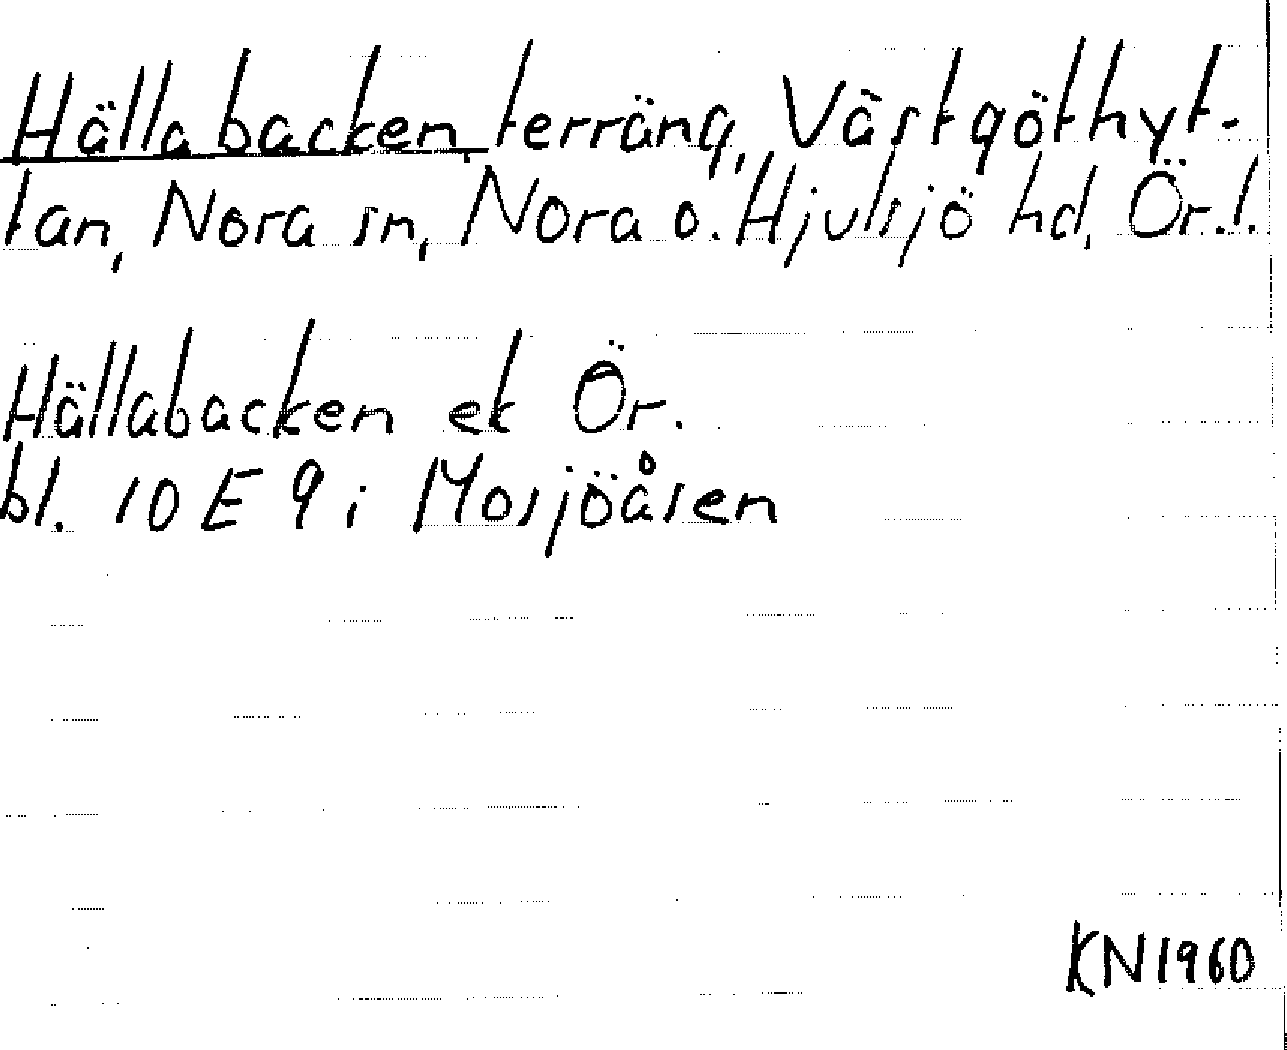 Hällabacken, terräng, Västgöthyt-
tan, Nora sn, Nora o. Hjulsjö hd, Ör. l.
Hällabacken ek Ör.
bl. 10 E 9 i Mosjöåsen
KN 1960